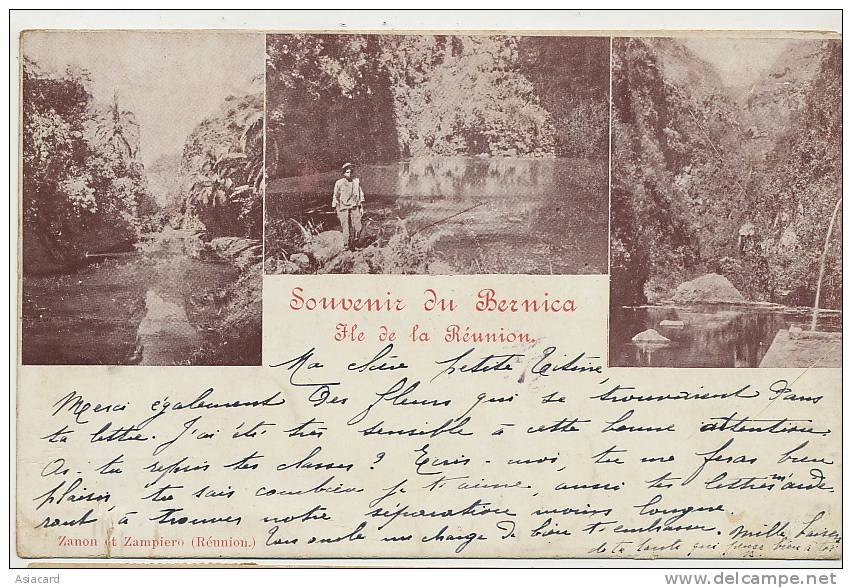 Souvenir du Bernica
Ile de la Réunion.
Ma chère petite Titine,
Merci également des fleurs qui se trouvaient dans
ta lettre. J'ai été très sensible à cette bonne attention.
As-tu repris tes classes? Ecris-moi, tu me feras bien
plaisir, tu sais combien je t'aime, aussi tes lettres m'aide
ront à trouver notre séparation moins longue.
Ton oncle me charge de bien t'embrasser. Mille baisers
de ta qui pense bien à toi
Zanon et Zampiero (Réunion.)
Asiacard
delcampe.net